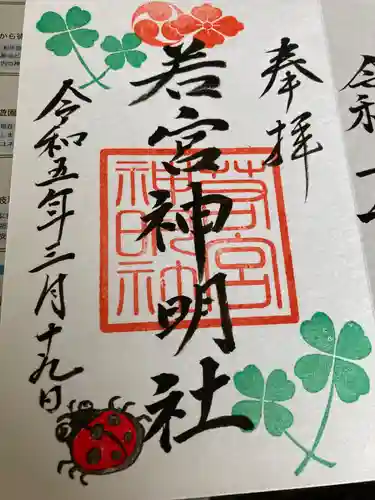 奉拝
若宮神明社
若宮
神明社
令和五年三月十九日
令和